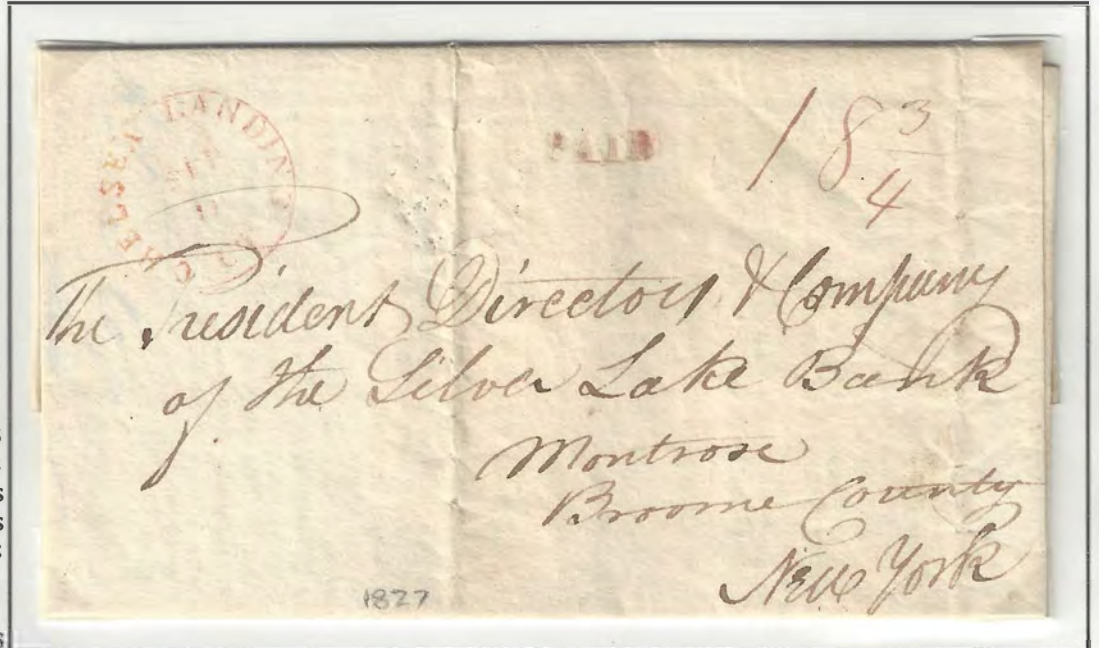 CHELSEA LANDING
PAID
18 3/4
The President Directors & Company
of the Silver Lake Bank
Montrose
Broome County
New York
1827